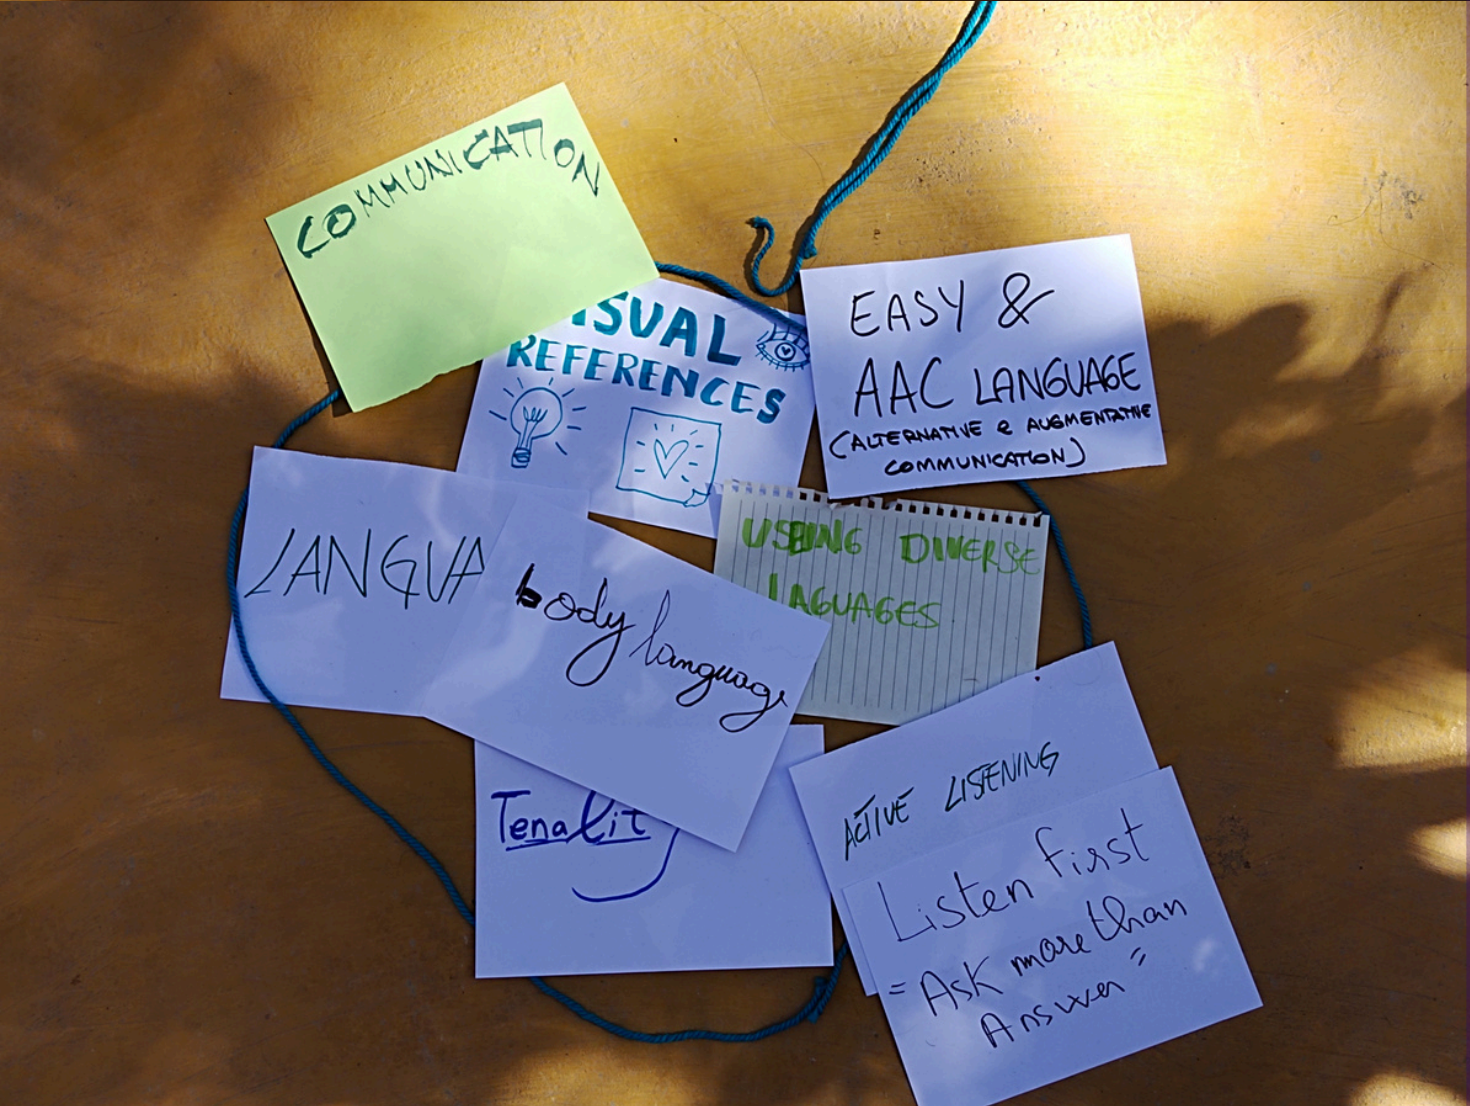 COMMUNICATION
ISUAL
REFERENCES
EASY &
AAC LANGUAGE
(ALTERNATIVE & AUGMENTATIVE
COMMUNICATION)
LANGUA
body language
USING DIVERSE
LAGUAGES
Tenality
ACTIVE LISTENING
Listen first
"Ask more than
Answer"